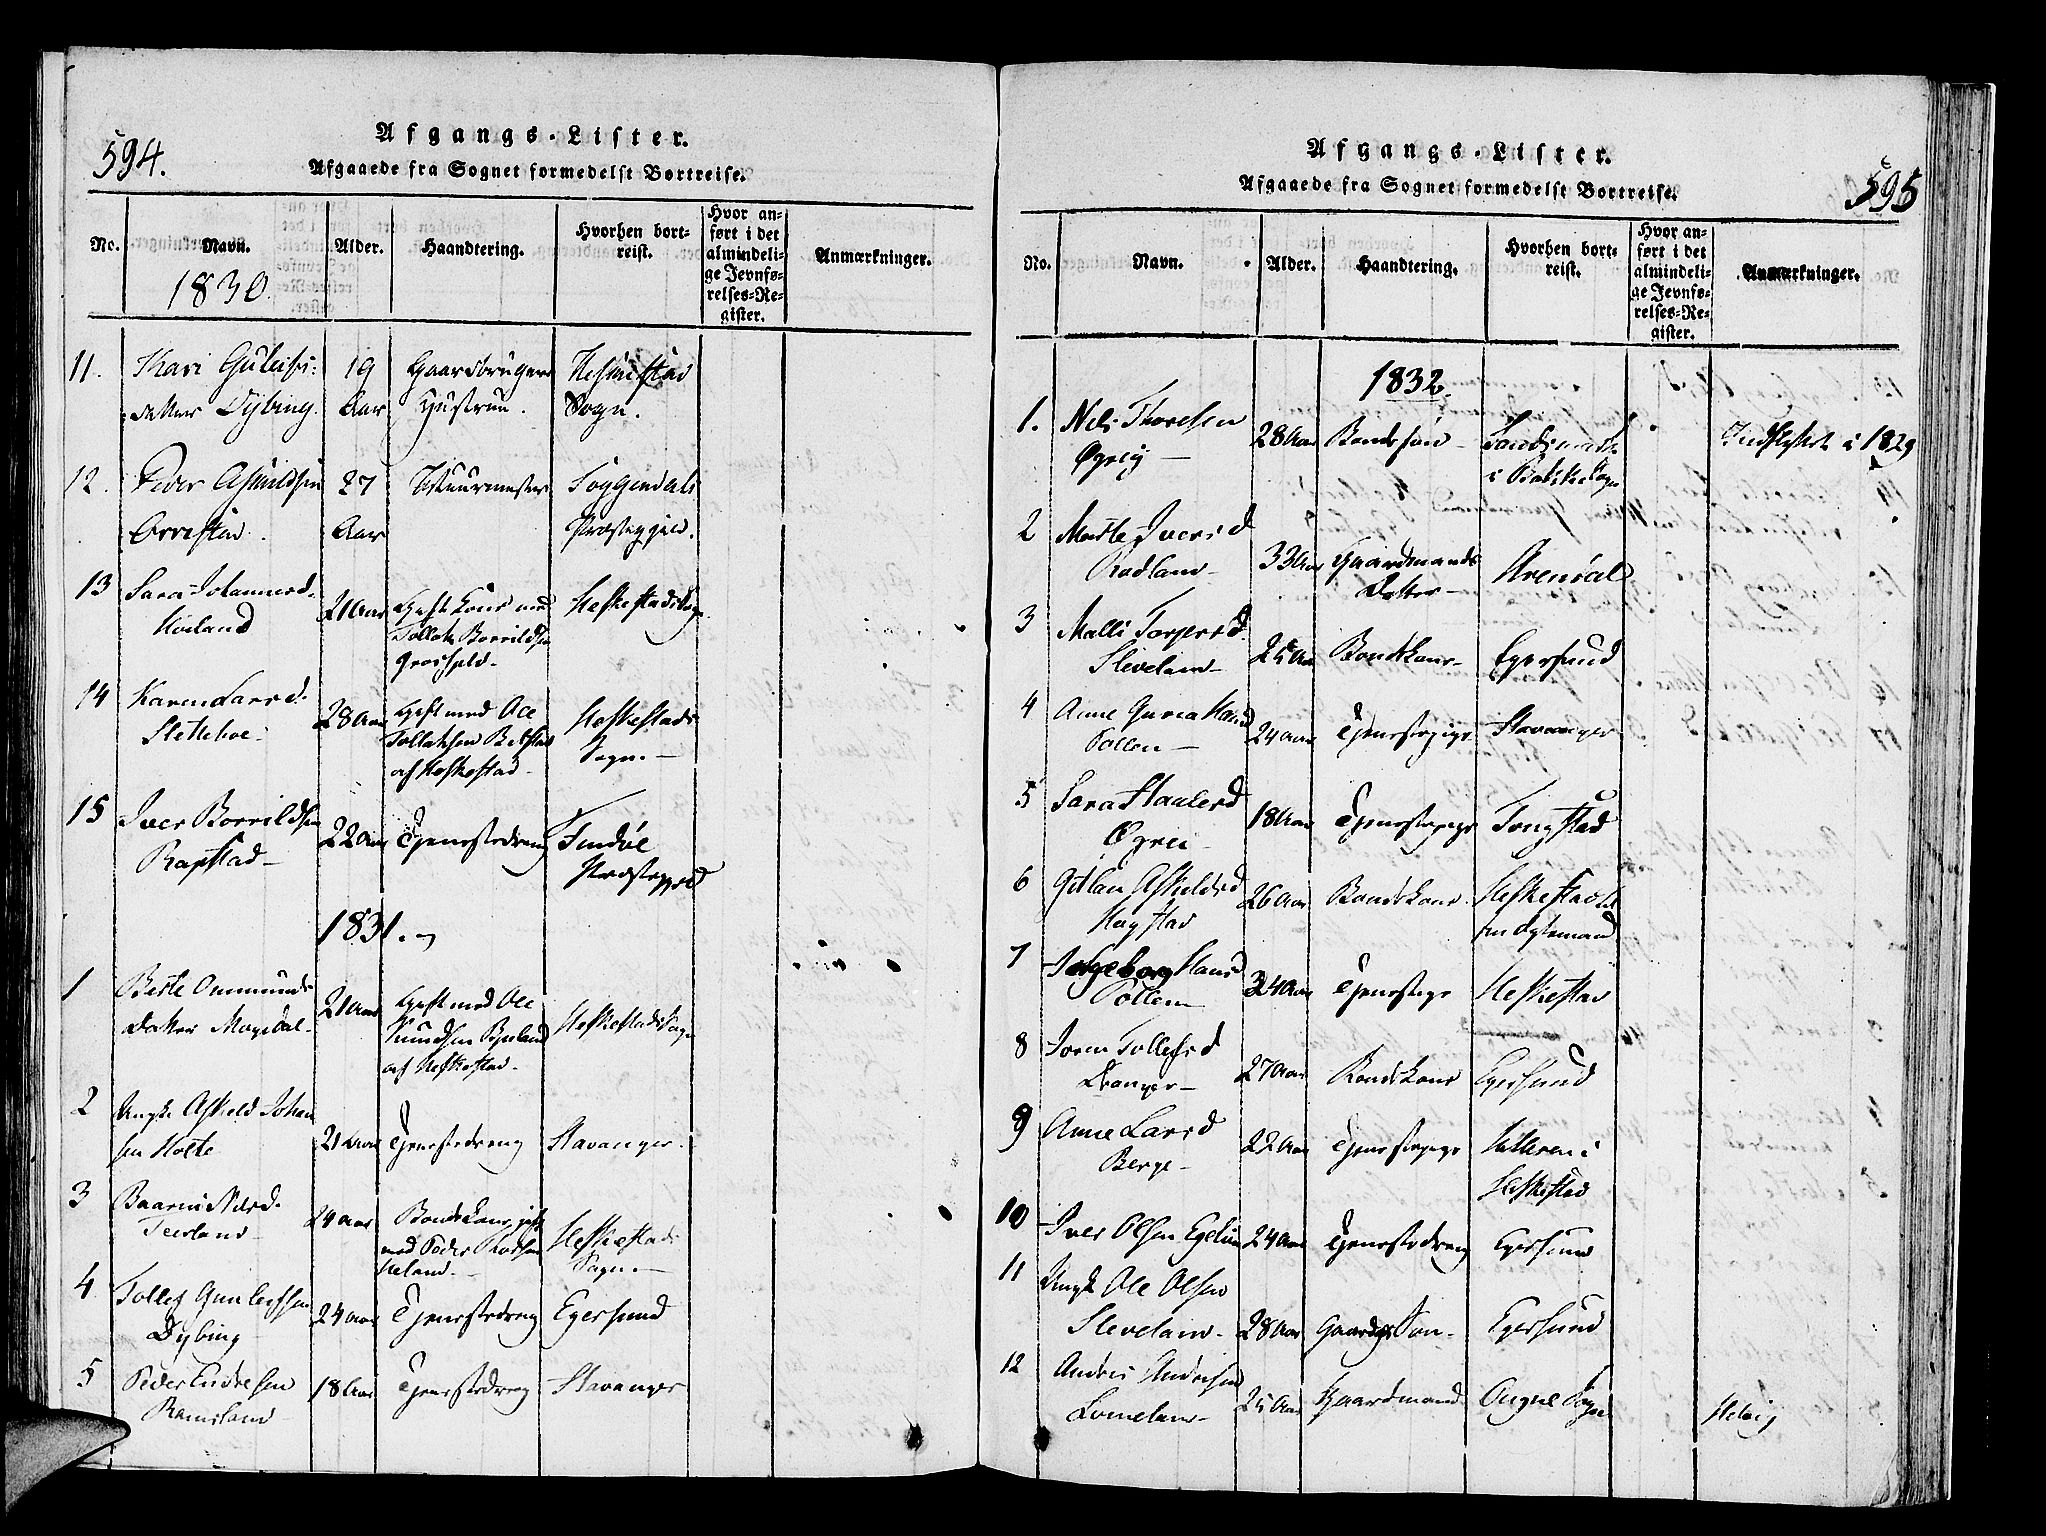 594.
Afgangs-Lister.
Afgaaede fra Sognet formedelst Bortreise.
No.
Navn.
Alder.
Haandtering.
Hvorhen bort-
reist.
Hvor an-
ført i det
almindeli-
ge Jevnfø-
relses-Re-
gister.
Anmærkninger.
1830
11.
Kari
Datter Dybing.
19
Aar
Gaardbrugers
Hustrue.
Sogn.
12.
Peder Asmildsen
Orrestad.
27
Aar
Præstegield.
13
Sara Johannesd.
Hovland
21 Aar
Gift Kone med
Tollak Borrildsen
Heskestad Sogn
14
Karen Larsd.
28 Aar
Gift med Ole
Tollaksen
af Heskestad
Heskestads
Sogn.
15
Iver Borrildsen
Rapstad
22 Aar
Tjenestedreng
Findøe
Præstegjeld
1831.
1
Berte Ommunds
Datter Mogedal
21 Aar
Gift med Ole
Knudsen Bjuland
af Heskestad.
Heskestad Sogn
2
Ungk. Askield Johan
sen Holte
21 Aar
Tjenestedreng
Stavanger.
3
Nilsd.
24 Aar
Bondekone gift
med Peder
Heskestads
Sogn.
4
Tollef Gunleifsen
Dybing
24 Aar
Tjenestedreng
Egersund
5
Peder Endresen
Ramsland
18 Aar
Tjenestedreng
Stavanger
595
Afgangs-Lister.
Afgaaede fra Sognet formedelst Bortreise.
No.
Navn.
Alder.
Haandtering.
Hvorhen bort-
reist.
Hvor an-
ført i det
almindeli-
ge Jevnfø-
relses-Re-
gister.
Anmærkninger.
1832.
1.
Nels Thorelsen
Øgreig
28 Aar
Bondesøn
i Bakke Sogn
Indflyttet i 1829
2
Marte Iversd
Rodland
33 Aar
Gaardmands
Datter
Arendal
3
Malli Torgersd.
Sleveland
25 Aar
Bondekone
Egersund
4
Anne Gurea Hansd
Tollen
24 Aar
Tjenestepige
Stavanger
5
Sara Staalesd
Øgrei
18 Aar
Tjenestepige
Tongstad
6
Askieldsd
26 Aar
Bondekone
Heskestad
7
Ingeborg Hansd
Tollen
34 Aar
Tjenestepige
Heskestad
8
Joren Tollefsd
Dranger
27 Aar
Bondekone
Egersund
9
Anne Larsd
Berge
22 Aar
Tjenestepige
Hilleren i
Heskestad
10
Iver Olsen Egeland
24 Aar
Tjenestedreng
Egersund
11
Ungk. Ole Olsen
Sleveland
28 Aar
Egersund
12
Anders Andersen
Lomeland
25 Aar
Gaardmand
Ougne Sogn